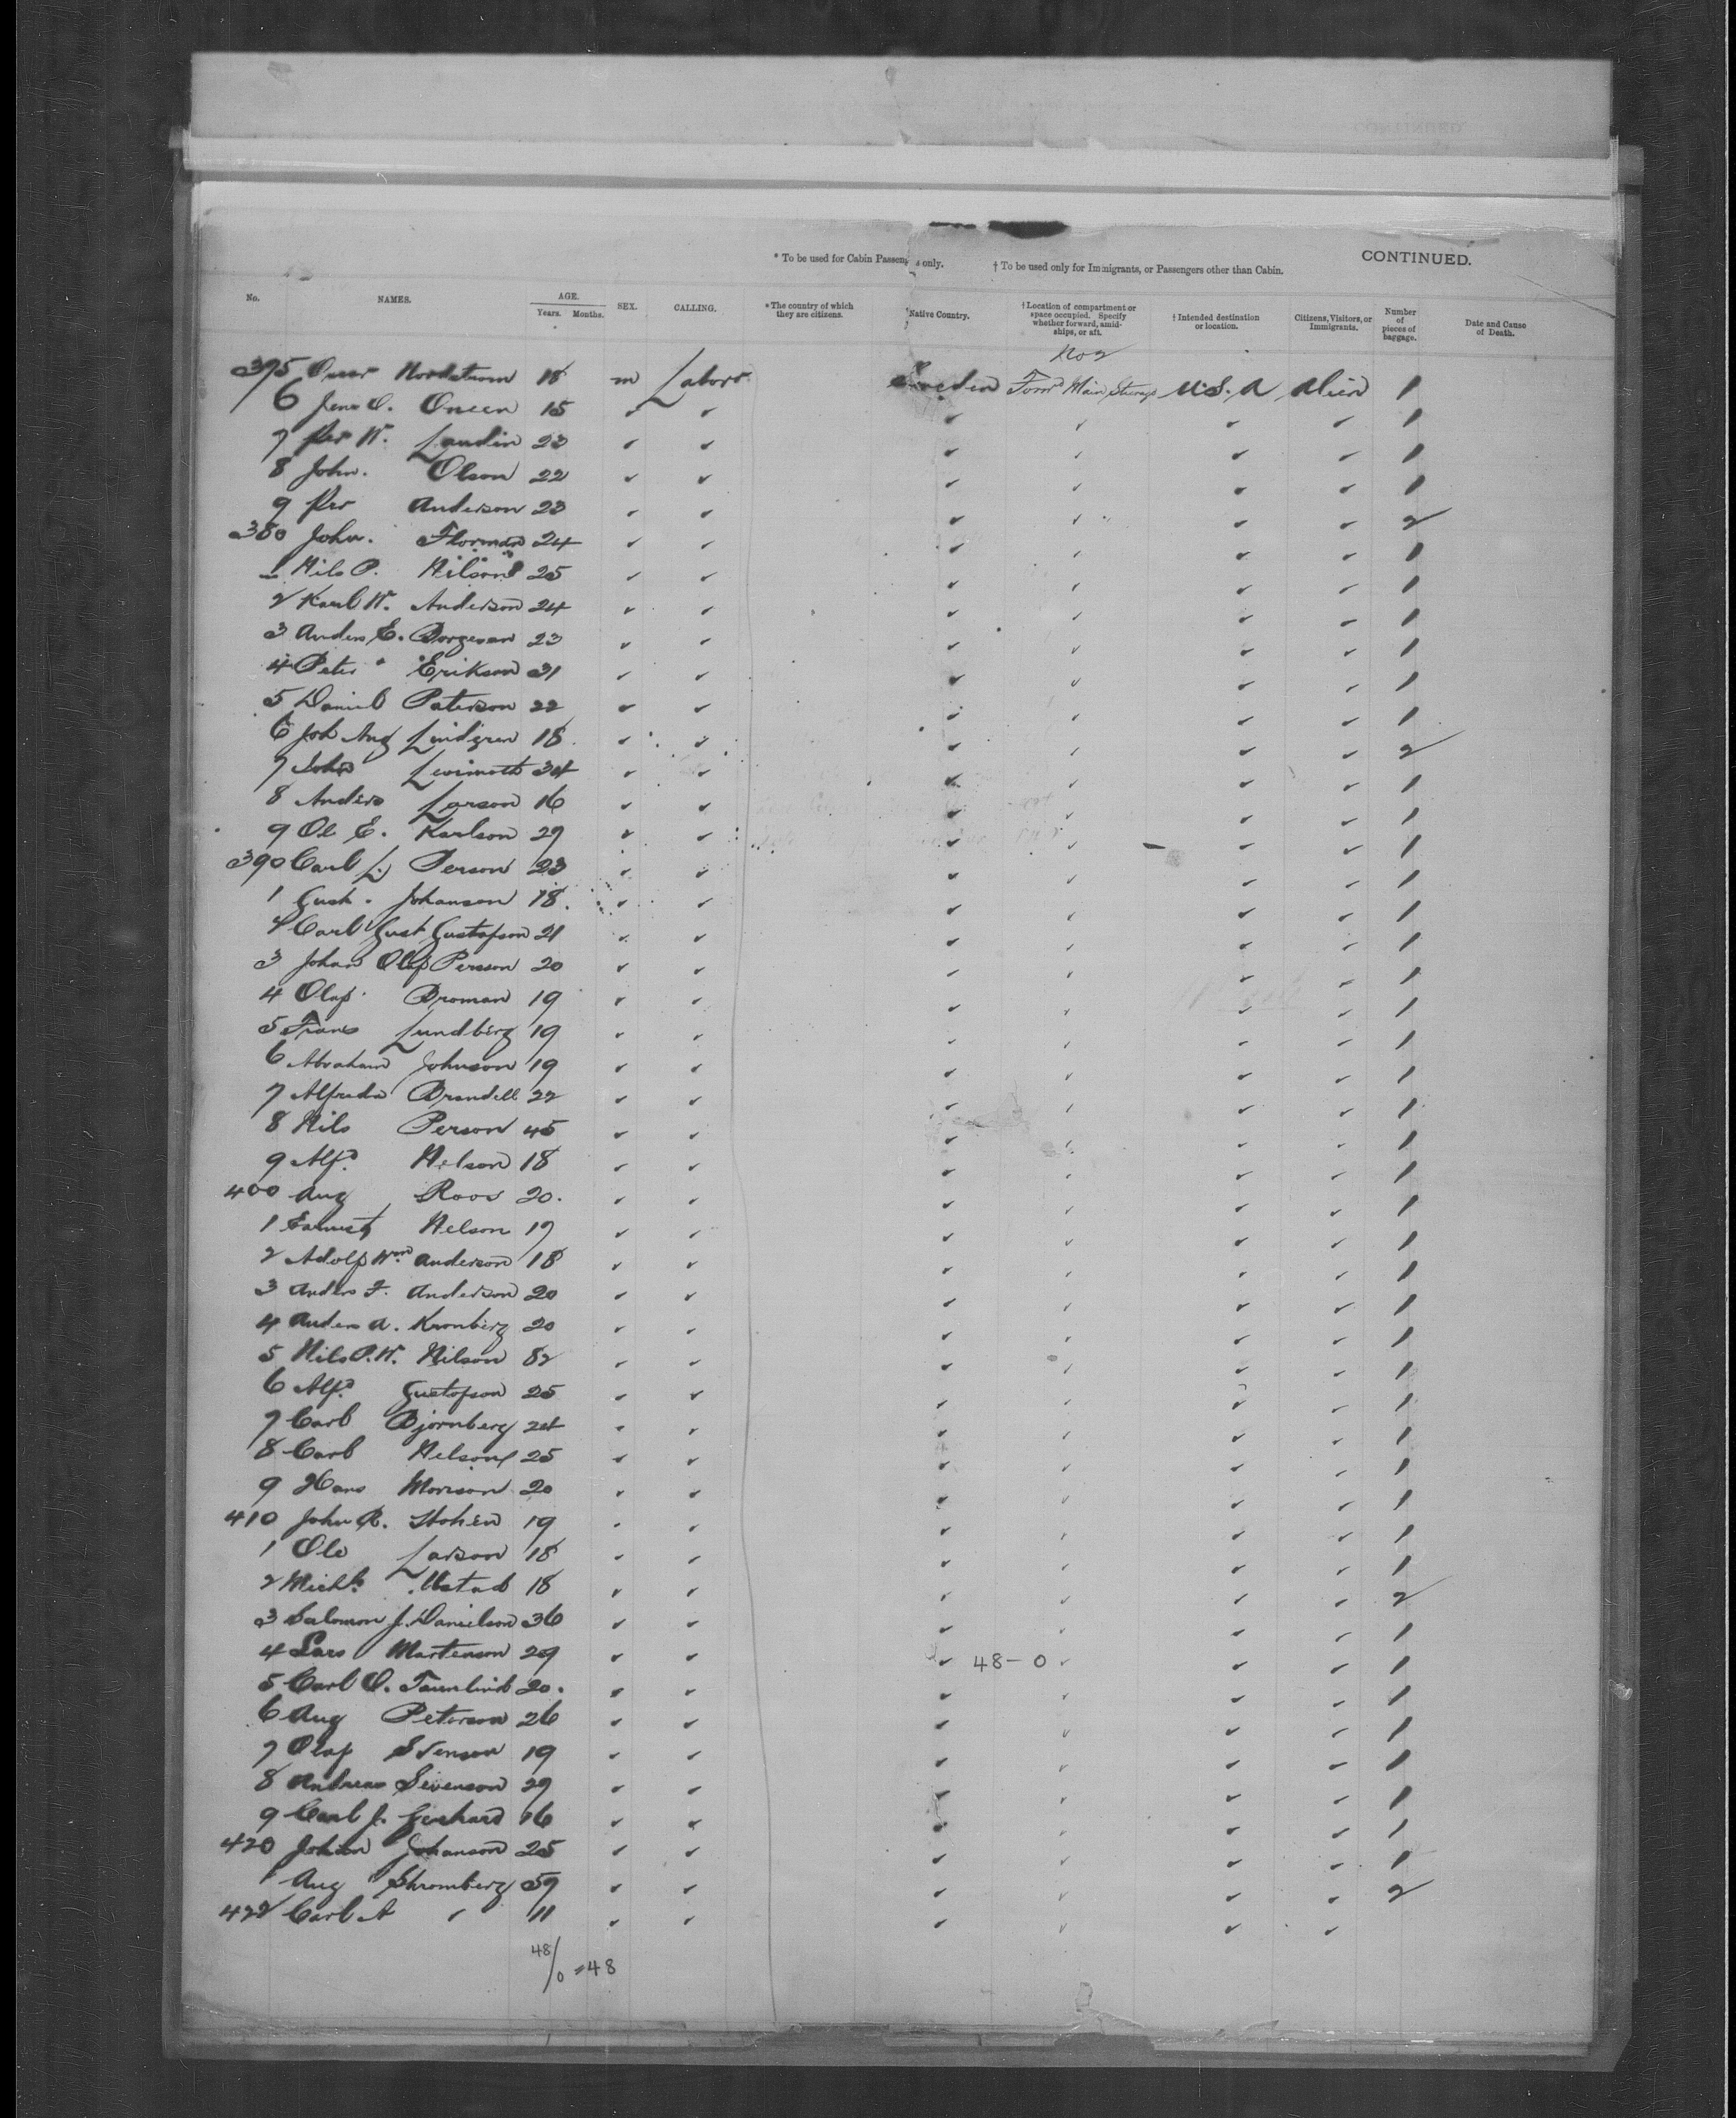 CONTINUED.
* To be used for Cabin Passengers only. † To be used only for Immigrants, or Passengers other than Cabin.
No. NAMES. AGE. Years. Months. SEX. CALLING. * The country of which they are citizens. Native Country. † Location of compartment or space occupied. Specify whether forward, amidships, or aft. † Intended destination or location. Citizens, Visitors, or Immigrants. Number of pieces of baggage. Date and Cause of Death.
No 2
375 Nordstrom 18 m Labor Sweden Forwd Main Steerage U.S.A Alien 1
6 Jens O. 15 ✓ ✓ ✓ ✓ ✓ ✓ 1
7 Per W. Laudin 23 ✓ ✓ ✓ ✓ ✓ ✓ 1
8 John. Olson 22 ✓ ✓ ✓ ✓ ✓ ✓ 1
9 Per Anderson 23 ✓ ✓ ✓ ✓ ✓ ✓ 2
380 John. Florman 24 ✓ ✓ ✓ ✓ ✓ ✓ 1
1 Nils P. Nilson 25 ✓ ✓ ✓ ✓ ✓ ✓ 1
2 Karl W. Anderson 24 ✓ ✓ ✓ ✓ ✓ ✓ 1
3 Anders E. Borgeson 23 ✓ ✓ ✓ ✓ ✓ ✓ 1
4 Peter Erikson 31 ✓ ✓ ✓ ✓ ✓ ✓ 1
5 Daniel Paterson 22 ✓ ✓ ✓ ✓ ✓ ✓ 1
6 Joh Aug Lindgren 18 ✓ ✓ ✓ ✓ ✓ ✓ 2
7 John 34 ✓ ✓ ✓ ✓ ✓ ✓ 1
8 Anders Larson 16 ✓ ✓ ✓ ✓ ✓ ✓ 1
9 Ol E. Karlson 29 ✓ ✓ ✓ ✓ ✓ ✓ 1
390 Carl L. Person 23 ✓ ✓ ✓ ✓ ✓ ✓ 1
1 Gust. Johanson 18 ✓ ✓ ✓ ✓ ✓ ✓ 1
2 Carl Gust Gustafson 21 ✓ ✓ ✓ ✓ ✓ ✓ 1
3 Johan Olof Persson 20 ✓ ✓ ✓ ✓ ✓ ✓ 1
4 Olaf Broman 19 ✓ ✓ ✓ ✓ ✓ ✓ 1
5 Frans Lundberg 19 ✓ ✓ ✓ ✓ ✓ ✓ 1
6 Abraham Johnson 19 ✓ ✓ ✓ ✓ ✓ ✓ 1
7 Alfreda Brandell 22 ✓ ✓ ✓ ✓ ✓ ✓ 1
8 Nils Person 45 ✓ ✓ ✓ ✓ ✓ ✓ 1
9 Alfd. Nelson 18 ✓ ✓ ✓ ✓ ✓ ✓ 1
400 Aug Roos 20. ✓ ✓ ✓ ✓ ✓ ✓ 1
1 Earnest Nelson 19 ✓ ✓ ✓ ✓ ✓ ✓ 1
2 Adolf Wm Anderson 18 ✓ ✓ ✓ ✓ ✓ ✓ 1
3 Anders F. Anderson 20 ✓ ✓ ✓ ✓ ✓ ✓ 1
4 Anders A. Kronberg 20 ✓ ✓ ✓ ✓ ✓ ✓ 1
5 Nils P.W. Nilson ✓ ✓ ✓ ✓ ✓ ✓ 1
6 Alfd. Gustafson 25 ✓ ✓ ✓ ✓ ✓ ✓ 1
7 Carl Bjornberg 24 ✓ ✓ ✓ ✓ ✓ ✓ 1
8 Carl Nelson 25 ✓ ✓ ✓ ✓ ✓ ✓ 1
9 Hans Monson 20 ✓ ✓ ✓ ✓ ✓ ✓ 1
410 John R. 19 ✓ ✓ ✓ ✓ ✓ ✓ 1
1 Ole Larson 18 ✓ ✓ ✓ ✓ ✓ ✓ 1
2 Ulstad 18 ✓ ✓ ✓ ✓ ✓ ✓ 2
3 Salomon J. Danielson 36 ✓ ✓ ✓ ✓ ✓ ✓ 1
4 Lars Martenson 29 ✓ ✓ ✓ 48-0 ✓ ✓ ✓ 1
5 Carl O. 20. ✓ ✓ ✓ ✓ ✓ ✓ 1
6 Aug Peterson 26 ✓ ✓ ✓ ✓ ✓ ✓ 1
7 Olaf Svenson 19 ✓ ✓ ✓ ✓ ✓ ✓ 1
8 Andreas Sevenson 29 ✓ ✓ ✓ ✓ ✓ ✓ 1
9 Carl J. Gerhard 16 ✓ ✓ ✓ ✓ ✓ ✓ 1
420 Johan Johanson 25 ✓ ✓ ✓ ✓ ✓ ✓ 1
1 Aug Shromberg 59 ✓ ✓ ✓ ✓ ✓ ✓ 2
422 Carl A ✓ 11 ✓ ✓ ✓ ✓ ✓ ✓
48/0 = 48